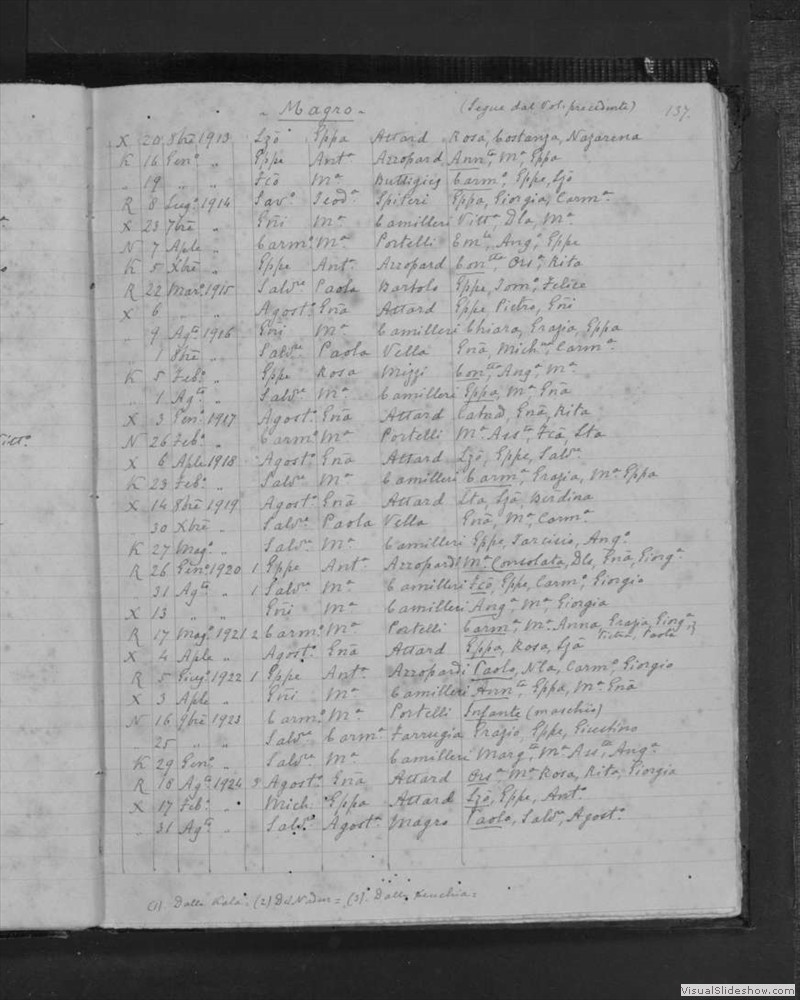 - Magro - (Segue dal Fol. precedente) 137.
X 20 8bre 1913 Lzo Eppa Attard Rosa, Costanza, Nazarena
K 16 Geno " Eppe Anta Azzopard Annta, Ma, Eppa
" 19 " " Fco Ma Buttigieg Carmo, Eppe, Lzo
R 8 Lugo 1914 Savo Teoda Spiteri Eppa, Giorgia, Carma
X 23 7bre " Gni Ma Camilleri Vitta, Dla, Ma
N 7 Aple " Carmo Ma Portelli Emla, Anga, Eppe
K 5 Xbre " Eppe Anta Azzopard Rita
R 22 Marzo 1915 Salvre Paola Bartolo Eppe, Felice
X 6 " " Agosto Gna Attard Eppe Pietro, Gni
" 9 Agto 1916 Gni Ma Camilleri Chiara, Grazia, Eppa
" 1 8bre " Salvre Paola Vella Gna, Carma
K 5 Febo " Eppe Rosa Mizzi Anga, Ma
" 1 Agto " Salvre Ma Camilleri Eppa, Ma Gna
X 3 Geno 1917 Agosto Gna Attard Gna, Rita
N 26 Febo " Carmo Ma Portelli Ma Assta, Fca, Lta
X 6 Aple 1918 Agosto Gna Attard Lzo, Eppe, Salvo
K 23 Febo " Salvre Ma Camilleri Carma, Grazia, Ma Eppa
X 14 8bre 1919 Agosto Gna Attard Lta, Lza, Berdina
" 30 Xbre " Salvre Paola Vella Gna, Ma, Carma
K 27 Mago " Salvre Ma Camilleri Eppe, Tarcisio, Ango
R 26 Geno 1920 1 Eppe Anta Azzopardi Ma Consolata, Dla, Gna, Giorga
" 31 Agto " 1 Salvre Ma Camilleri Fco, Eppe, Carmo, Giorgio
X 13 " " Gni Ma Camilleri Anga Ma Giorgia
R 17 Mago 1921 2 Carmo Ma Portelli Carma, Ma Anna, Grazia, Giorga
Paola
X 4 Aple " Agosto Gna Attard Eppa, Rosa, Lza
R 5 Giugo 1922 1 Eppe Anta Azzopardi Paolo, Carmo Giorgio
X 3 Aple " Gni Ma Camilleri Annta, Eppa, Ma Gna
N 16 9bre 1923 Carmo Ma Portelli Infante (maschio)
" 25 " " Salvre Carma Farrugia Grazio, Eppe, Giustino
K 29 Geno " Salvre Ma Camilleri Margta, Ma Assta, Anga
R 18 Agto 1924 3 Agosto Gna Attard Orsa Ma Rosa, Rita, Giorgia
X 17 Febo " Mich. Eppa Attard Lzo, Eppe, Anto
" 31 Agto " Salvo Agosta Magro Paolo, Salvo, Agosto
(1). Dalla Kala. (2) Del Nadur = (3). Dalla =
Vitto
VisualSlideshow.com